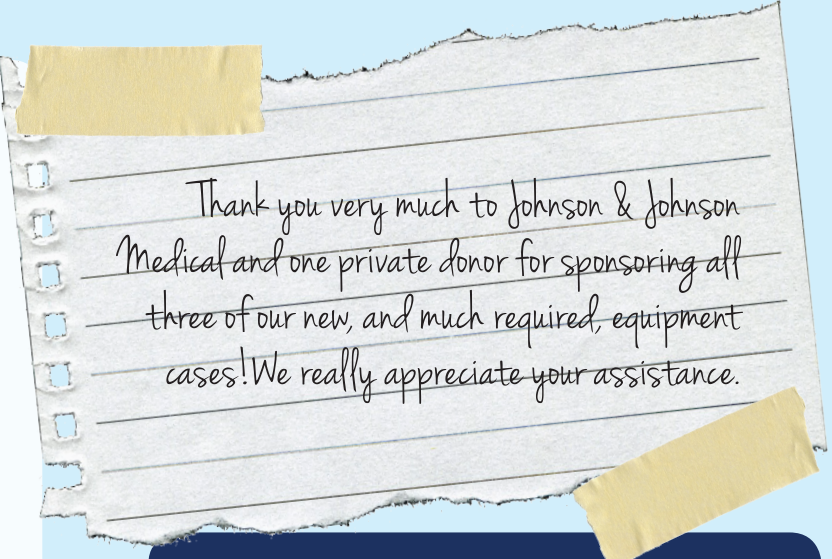 Thank you very much to Johnson & Johnson
Medical and one private donor for sponsoring all
three of our new, and much required, equipment
cases! We really appreciate your assistance.